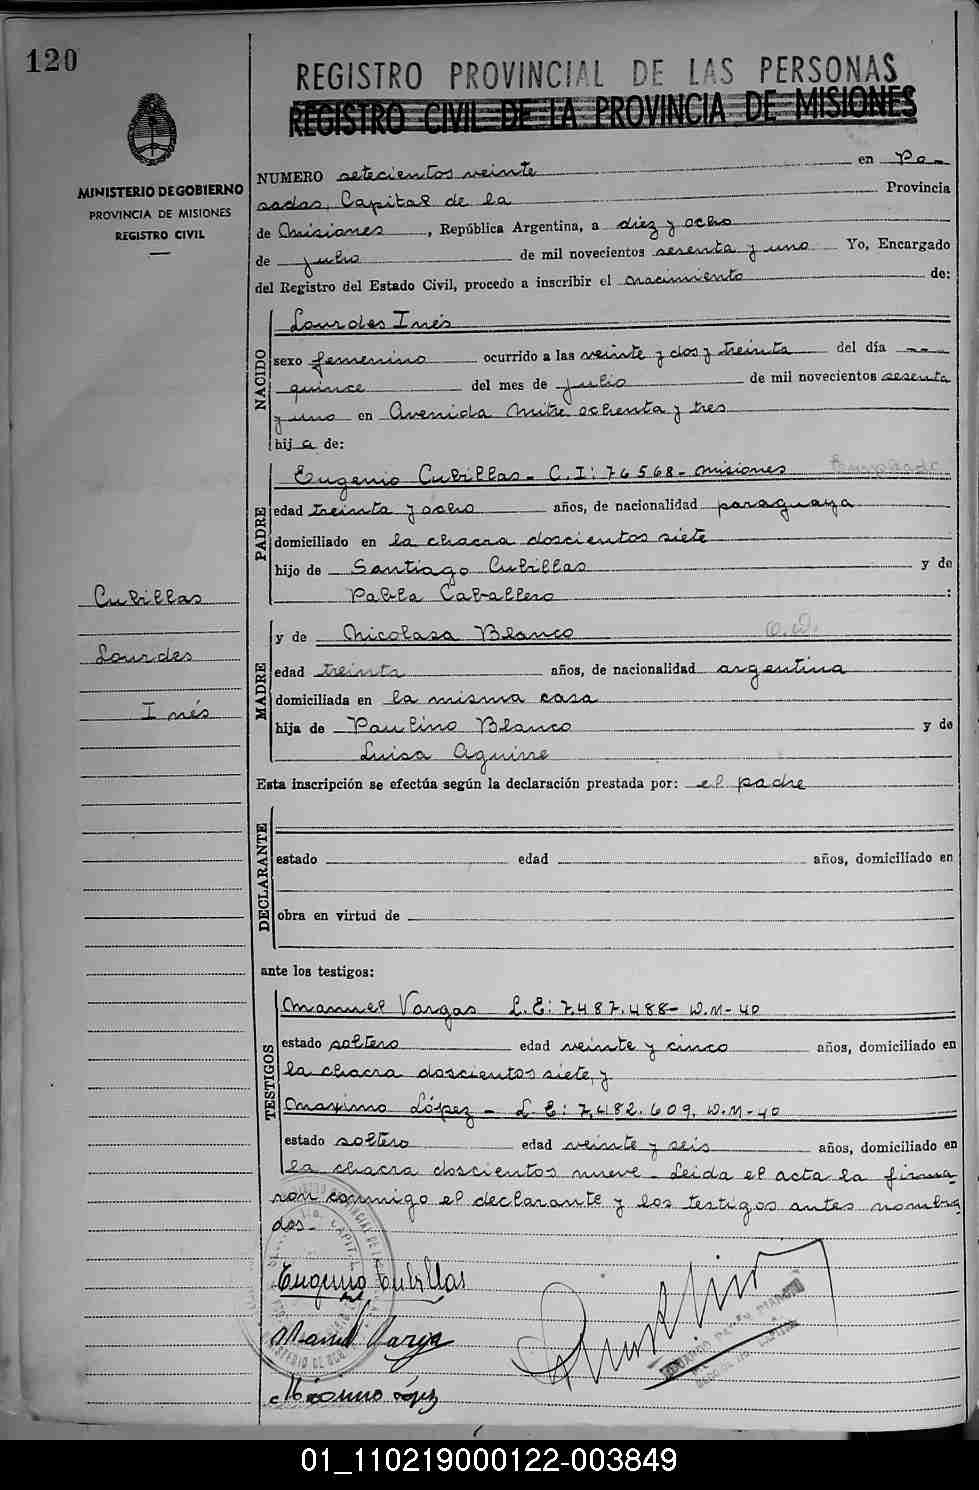 120
REGISTRO PROVINCIAL DE LAS PERSONAS
REGISTRO CIVIL DE LA PROVINCIA DE MISIONES
MINISTERIO DE GOBIERNO
PROVINCIA DE MISIONES
REGISTRO CIVIL
NUMERO setecientos veinte en Po-
sadas, Capital de la Provincia
de Misiones, República Argentina, a diez y ocho
de julio de mil novecientos sesenta y uno Yo, Encargado
del Registro del Estado Civil, procedo a inscribir el nacimiento de:
NACIDO
Lourdes Inés
sexo femenino ocurrido a las veinte y dos y treinta del día ---
quince del mes de julio de mil novecientos sesenta
y uno en Avenida Mitre ochenta y tres
hija de:
PADRE
Eugenio Cubillas - C.I: 76568 - Misiones Empleado
edad treinta y ocho años, de nacionalidad paraguaya
domiciliado en la chacra doscientos siete
hijo de Santiago Cubillas y de
Pabla Caballero :
Cubillas
Lourdes
Inés
MADRE
y de Nicolasa Blanco Q.D.
edad treinta años, de nacionalidad argentina
domiciliada en la misma casa
hija de Paulino Blanco y de
Luisa Aguirre
Esta inscripción se efectúa según la declaración prestada por: el padre
DECLARANTE
estado edad años, domiciliado en
obra en virtud de
ante los testigos:
TESTIGOS
Manuel Vargas L.E: 7.487.488- D.M-40
estado soltero edad veinte y cinco años, domiciliado en
la chacra doscientos siete, y
Maximo López - L.E: 7,482.609. D.M-40
estado soltero edad veinte y seis años, domiciliado en
la chacra doscientos nueve - Leida el acta la firma-
ron conmigo el declarante y los testigos antes nombra
dos-
Eugenio Cubillas
Manuel Vargas
Máximo López
01_110219000122-003849